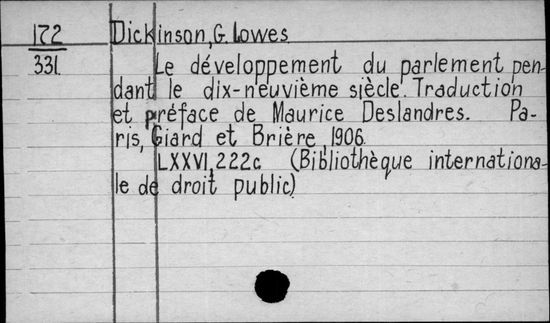 172 Dickinson, G. Lowes
331 Le développement du parlement pen-
dant le dix-neuvième siècle. Traduction
et préface de Maurice Deslandres. Pa-
ris, Giard et Brière, 1906.
LXXVI, 222c (Bibliothèque internationa-
le de droit public)